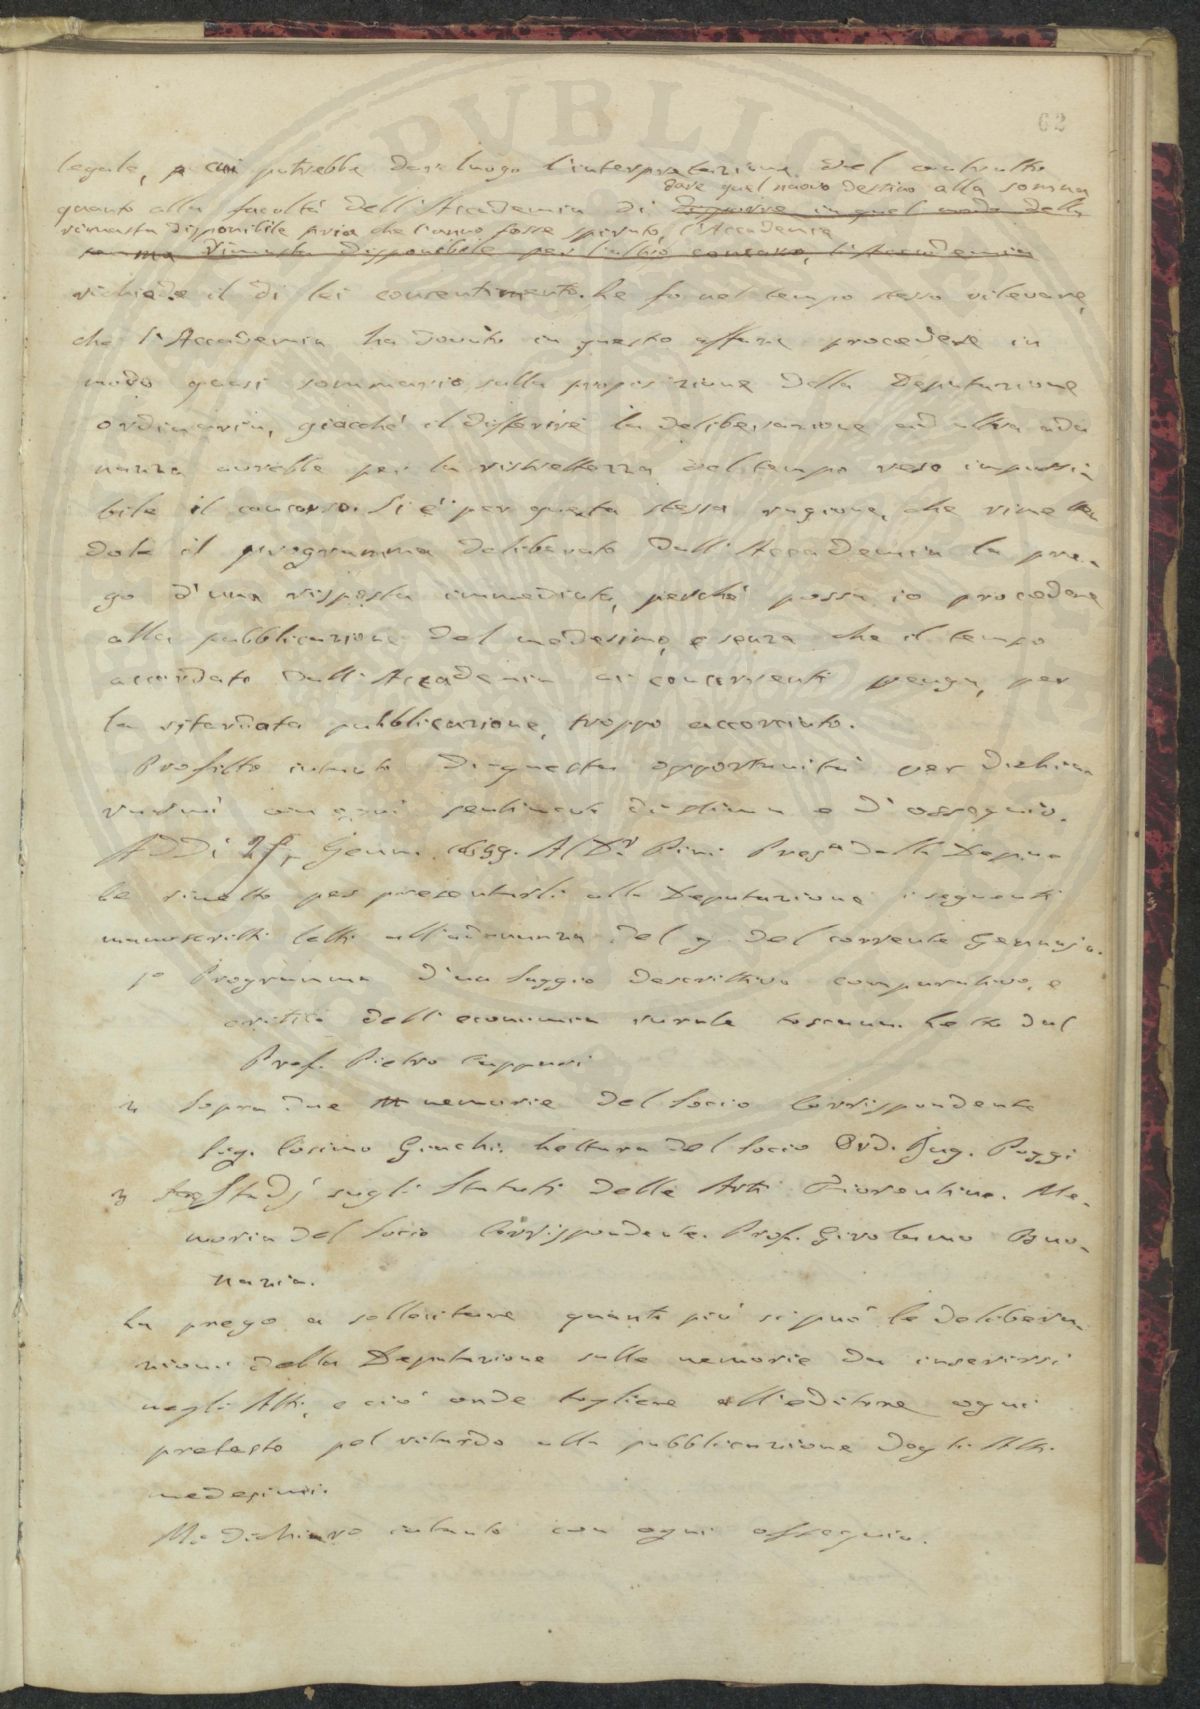 62
legale, a cui potrebbe dar luogo l'interpretazione del contratto
dare quel nuovo destino alla somma
quanto alla facoltà dell'Accademia di disporre in quel modo della
rimasta disponibile pria che l'anno fosse spirato, l'Accademia
somma rimasta disponibile per l'altro concorso, l'Accademia
richiede il di lei consentimento. Le fo nel tempo stesso rilevare,
che l'Accademia ha dovuto in questo affare procedere in
modo quasi sommario sulla proposizione della Deputazione
ordinaria, giacché il differire la deliberazione ad altra adu
nanza avrebbe per la ristrettezza del tempo reso impossi-
bile il concorso. Si è per questa stessa ragione, che rimetten
dole il programma deliberato dall'Accademia la pre-
go d'una risposta immediata, perché possa io procedere
alla pubblicazione del medesimo, e senza che il tempo
accordato dall'Accademia ai concorrenti venga, per
la ritardata pubblicazione, troppo accorciato.
Profitto intanto di questa opportunità per dichia
rarmi con ogni sentimento di stima e d'ossequio.
Addì Genn. 1859. Al Dr. Pini Preg. della Depne
Le rimetto per presentarli alla Deputazione i seguenti
manoscritti letti all'adunanza del 9 del corrente Gennajo.
1º Programma d'un Saggio descrittivo comparativo, e
critico dell'economia rurale toscana. Letto dal
Prof. Pietro Cuppari
2 Sopra due memorie del Socio Corrispondente
Sig. Cosimo Giachi. Lettura del Socio Ord. Poggi
3 Studj sugli Statuti delle Arti Fiorentine. Me-
moria del Socio Corrispondente. Prof. Girolamo Buo-
nazia.
La prego a sollecitare quanto più si può le delibera
zioni della Deputazione sulle memorie da inserirsi
negli Atti, e ciò onde togliere all'editore ogni
pretesto pel ritardo alla pubblicazione degli Atti
medesimi.
Mi dichiaro intanto con ogni ossequio.